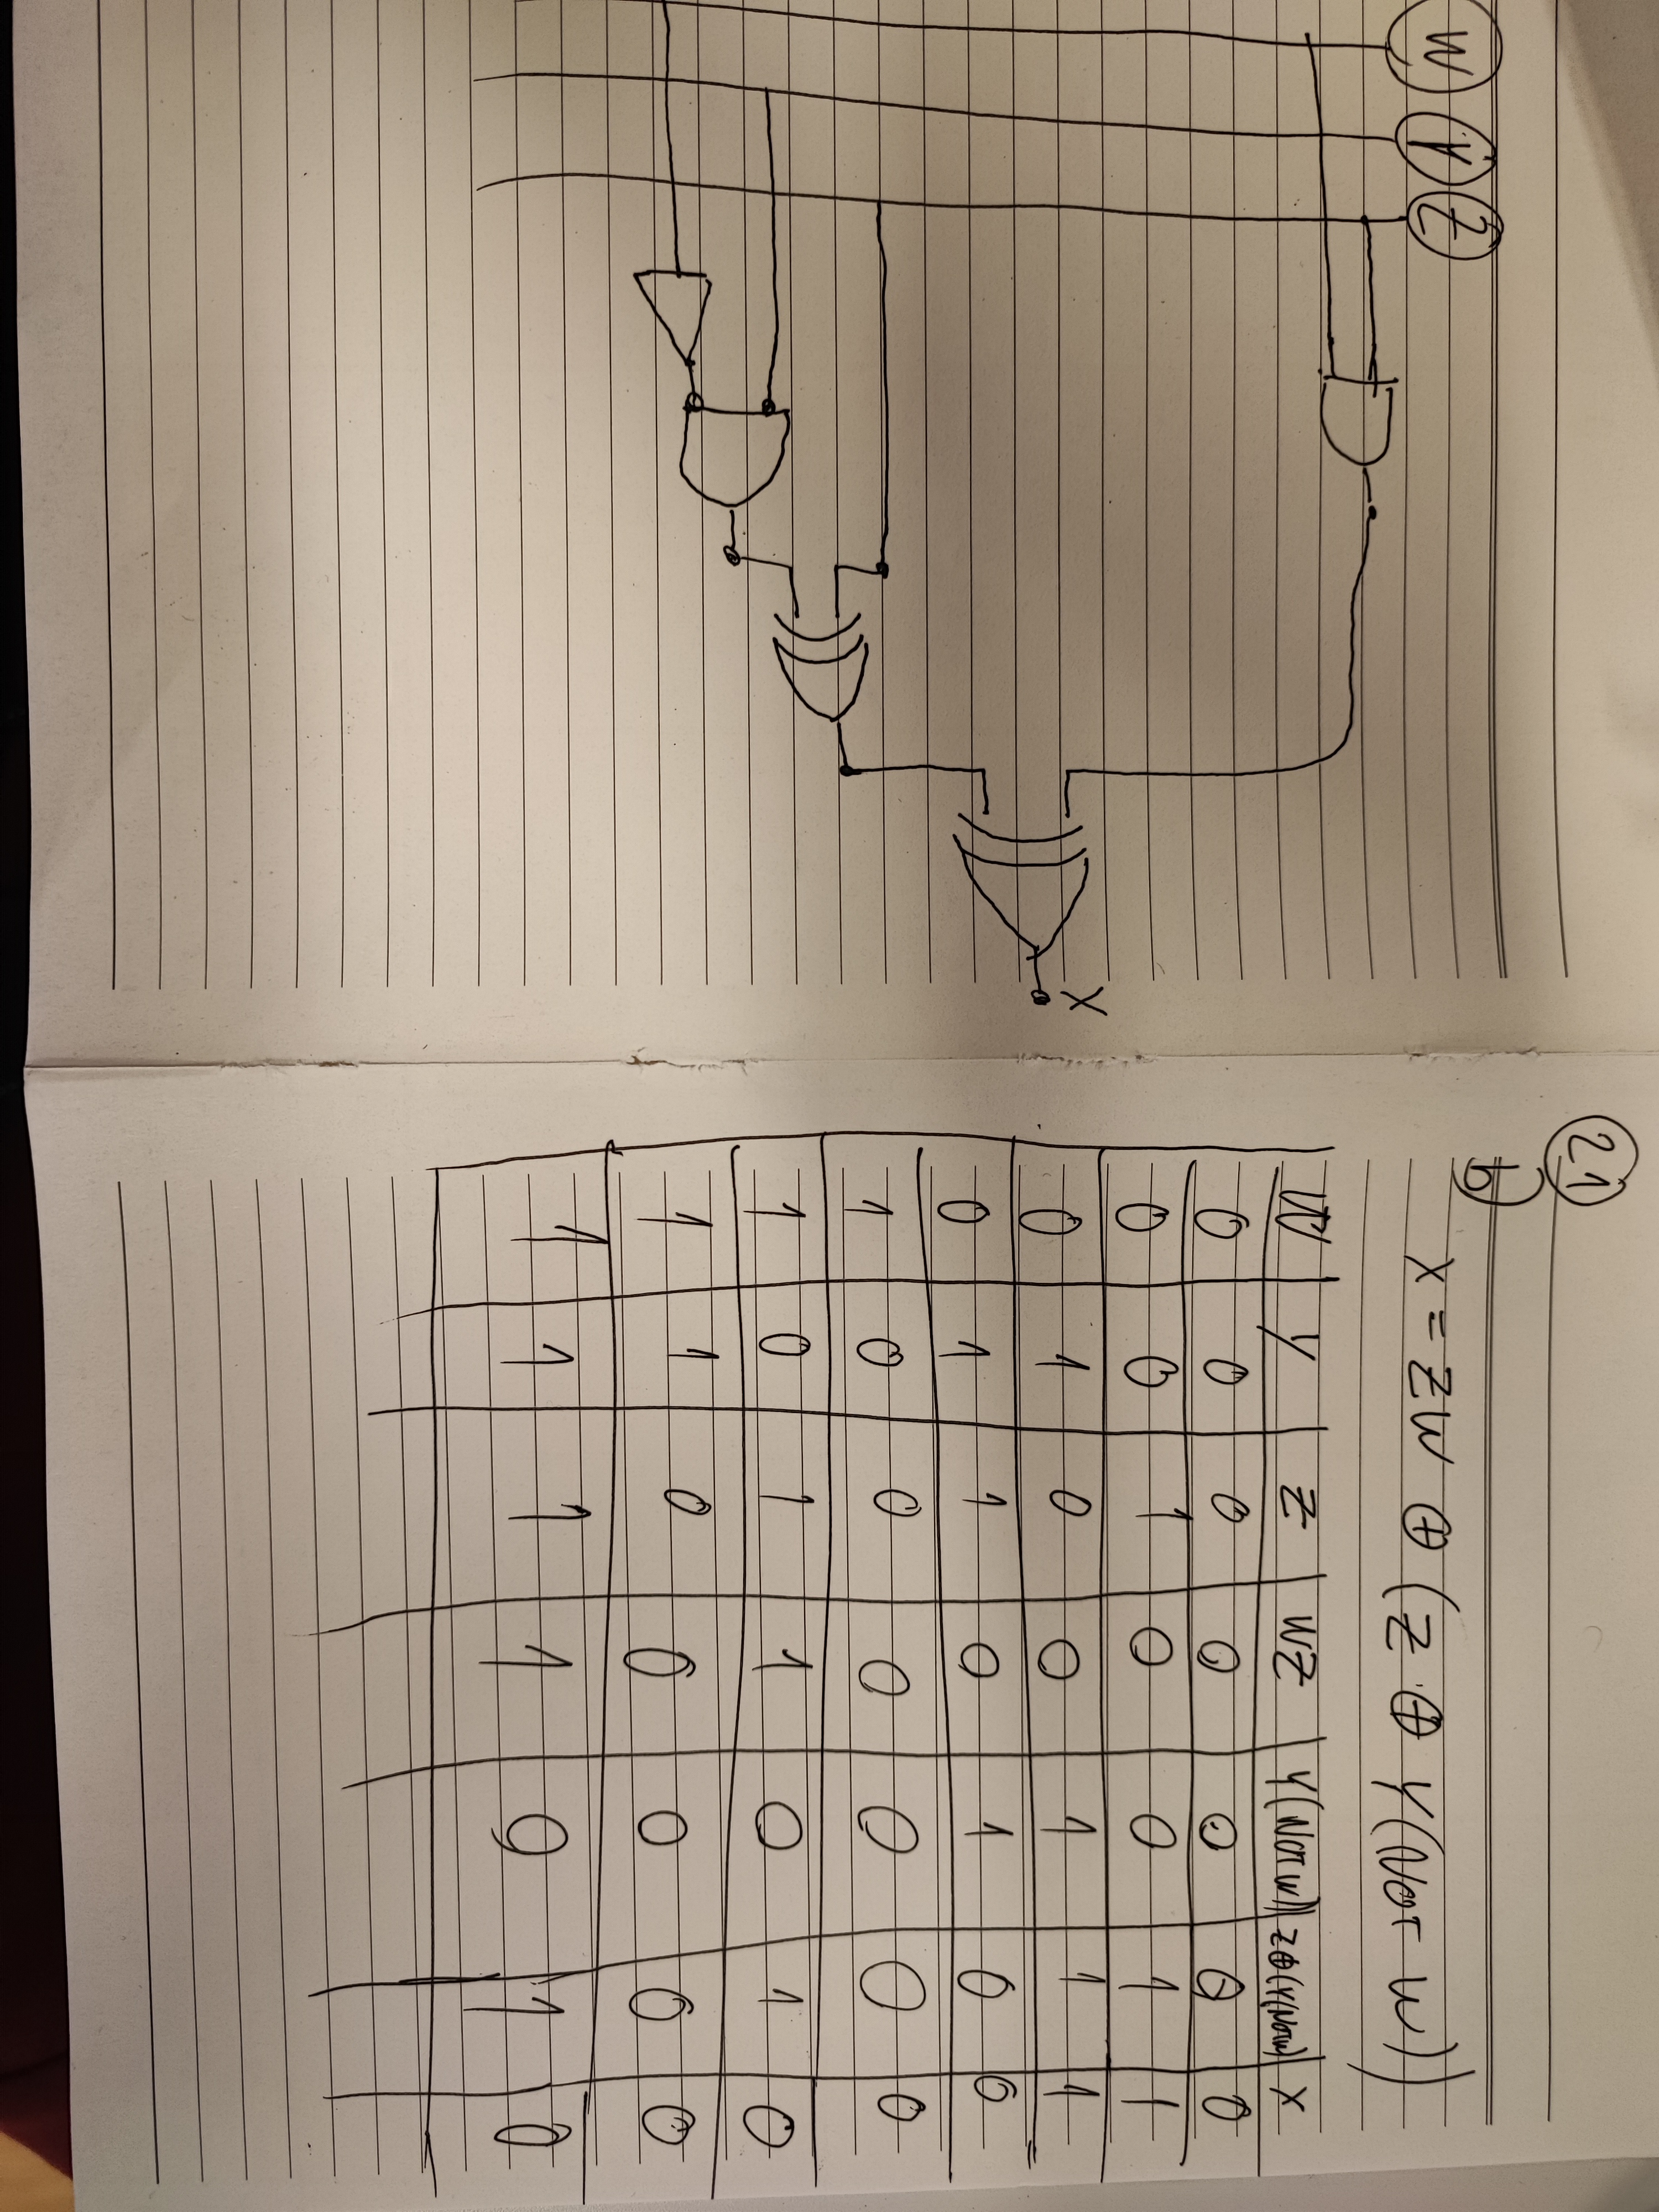 W
Y
Z
X
21
b)
X = ZW ⊕ (Z ⊕ Y(NOT W))
W Y Z WZ Y(NOT W) Z⊕(Y(NOT W)) X
0 0 0 0 0 0 0
0 0 1 0 0 1 1
0 1 0 0 1 1 1
0 1 1 0 1 0 0
1 0 0 0 0 0 0
1 0 1 1 0 1 0
1 1 0 0 0 0 0
1 1 1 1 0 1 0